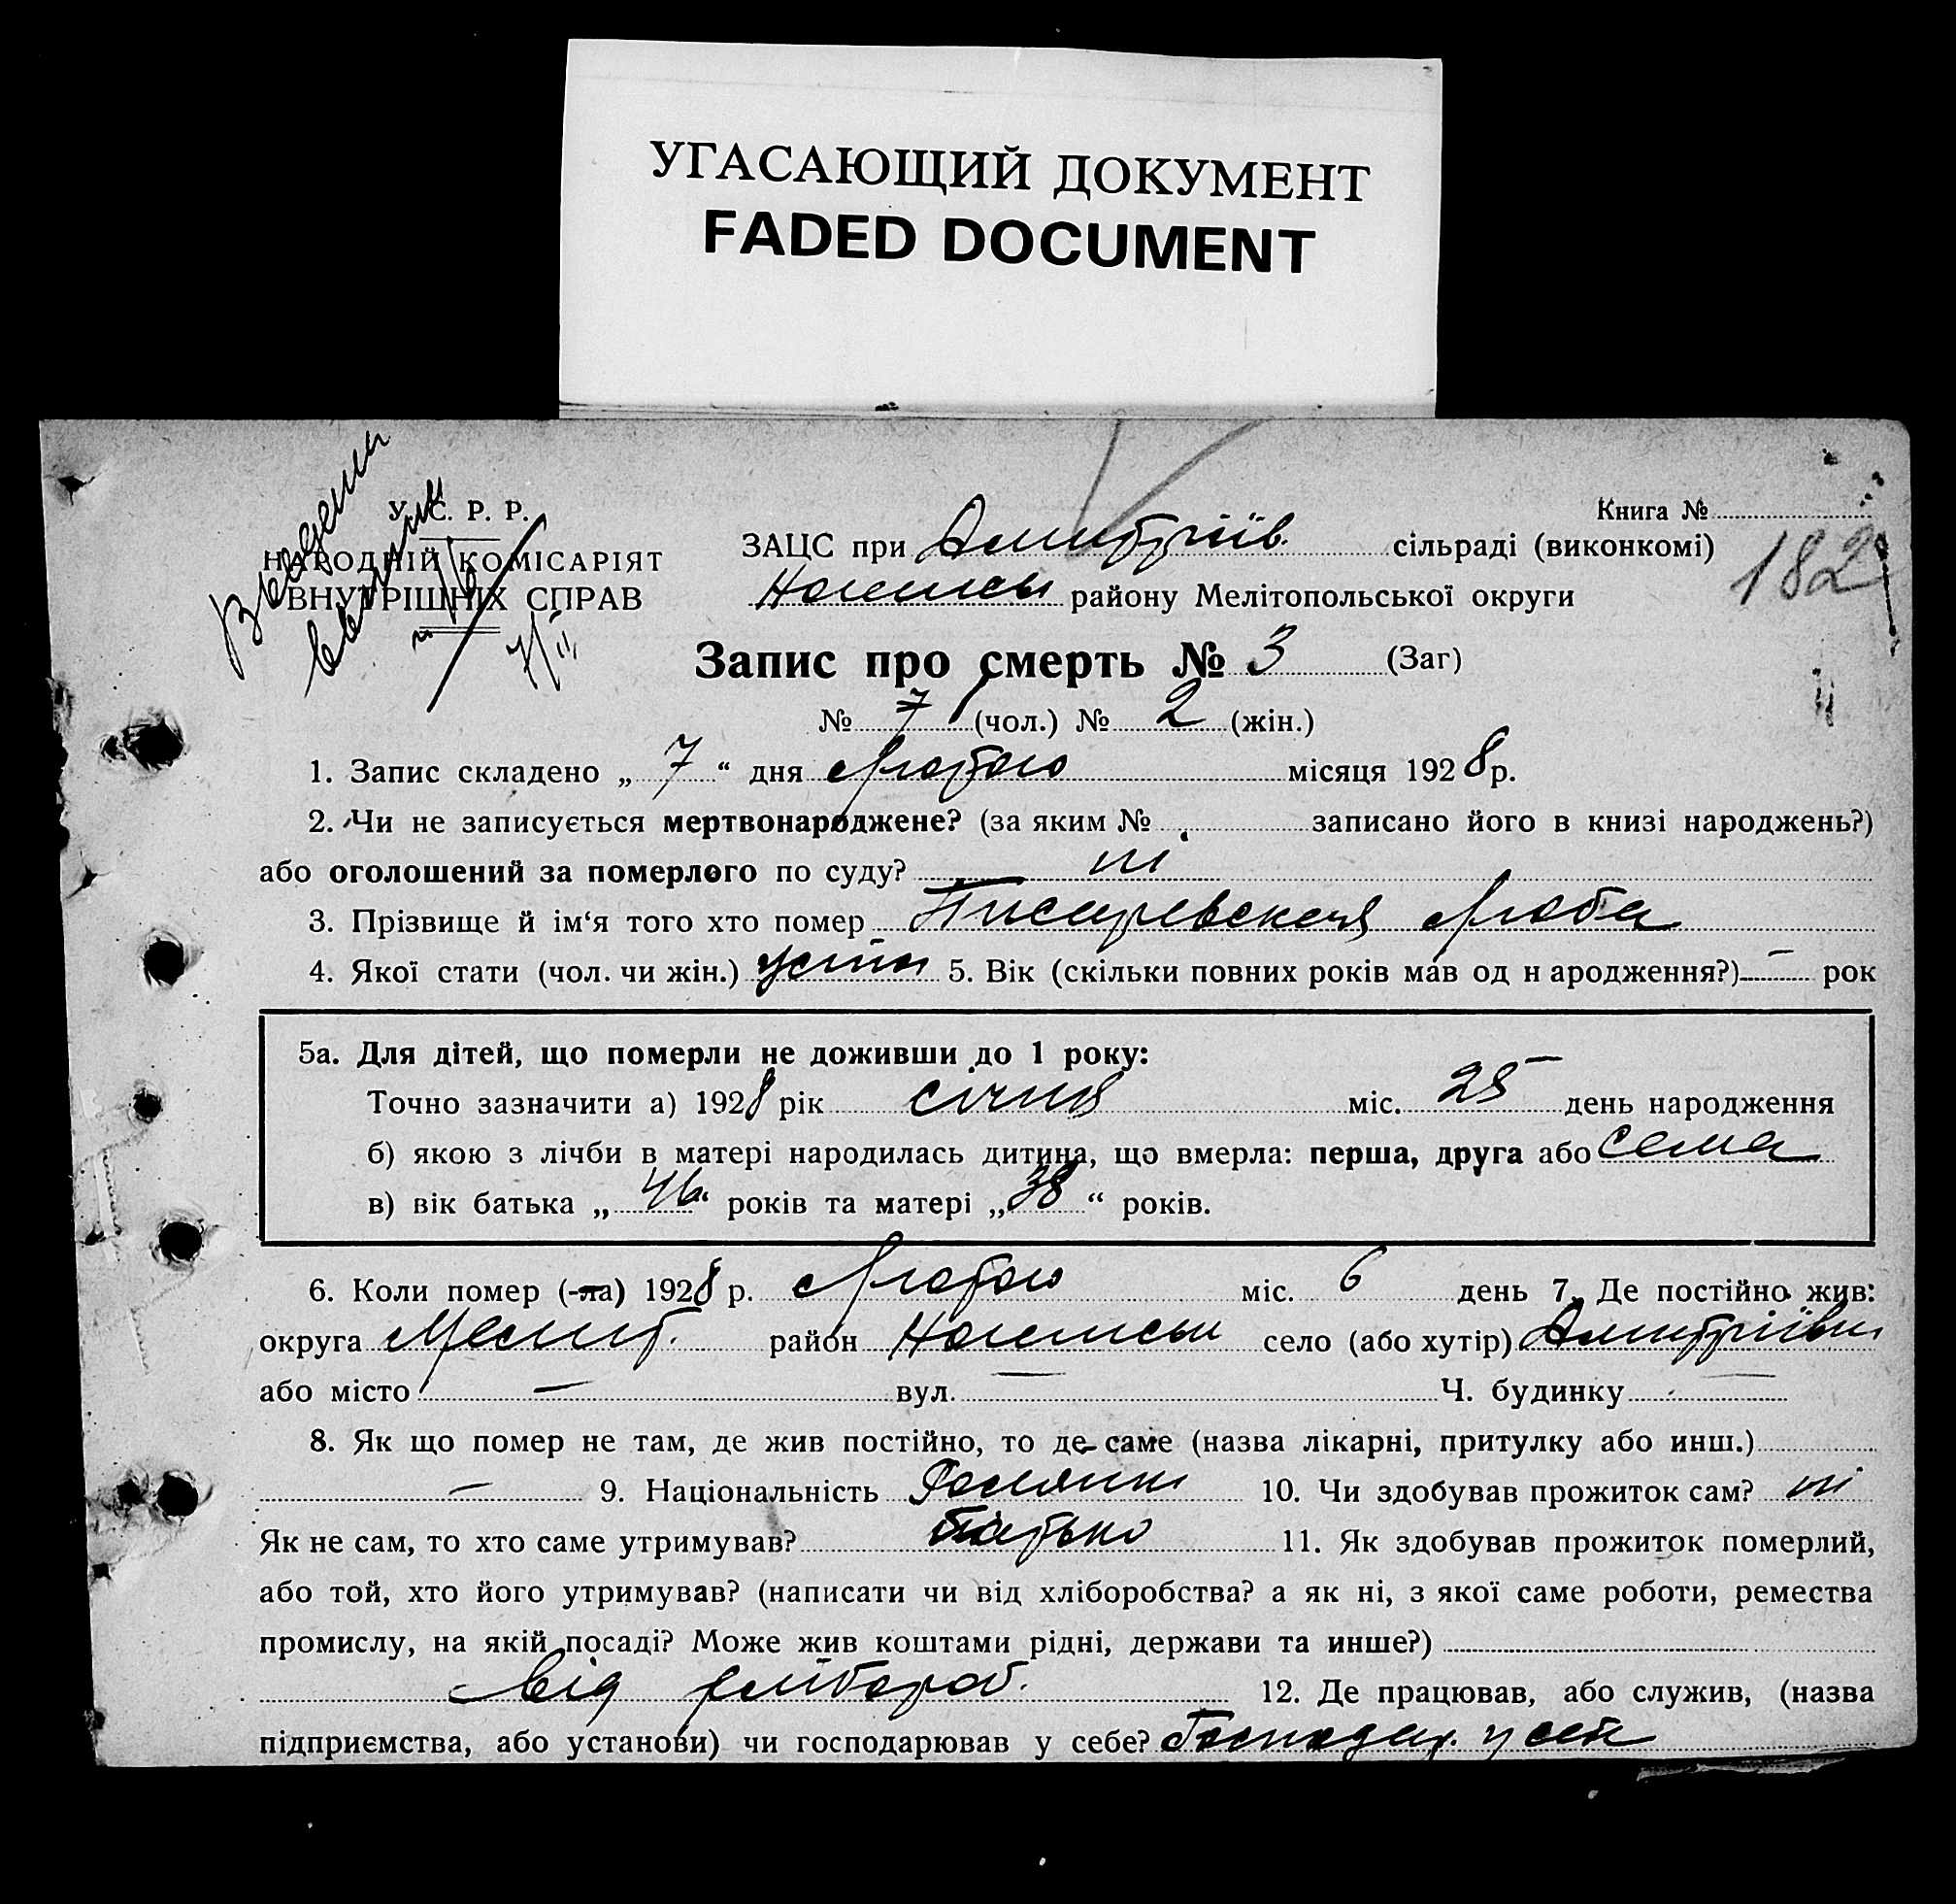 УГАСАЮЩИЙ ДОКУМЕНТ
FADED DOCUMENT
У. С. Р. Р.
НАРОДНІЙ КОМІСАРІЯТ
ВНУТРІШНІХ СПРАВ
7/II
Книга №
182
ЗАЦС при Дмитріїв. сільраді (виконкомі)
району Мелітопольської округи
Запис про смерть № 3 (Заг)
№ (чол.) № 2 (жін.)
1. Запис складено „ 7 “ дня Лютого місяця 1928 р.
2. Чи не записується мертвонароджене? (за яким № записано його в книзі народжень?)
або оголошений за померлого по суду? ні
3. Прізвище й ім‘я того хто помер Писаревская Люба
4. Якої стати (чол. чи жін.) 5. Вік (скільки повних років мав од н ародження?) — рок
5а. Для дітей, що померли не доживши до 1 року:
Точно зазначити а) 1928 рік січня міс. 25 день народження
б) якою з лічби в матері народилась дитина, що вмерла: перша, друга або сема
в) вік батька „ 46 “ років та матері „ 38 “ років.
6. Коли помер (-ла) 1928 р. Лютого міс. 6 день 7. Де постійно жив:
округа Меліт. район село (або хутір) Дмитріївка
або місто — вул. — Ч. будинку —
8. Як що помер не там, де жив постійно, то де саме (назва лікарні, притулку або инш.)
— 9. Національність 10. Чи здобував прожиток сам? ні
Як не сам, то хто саме утримував? батько 11. Як здобував прожиток померлий,
або той, хто його утримував? (написати чи від хліборобства? а як ні, з якої саме роботи, ремества
промислу, на якій посаді? Може жив коштами рідні, держави та инше?)
від хлібороб. 12. Де працював, або служив, (назва
підприємства, або установи) чи господарював у себе? Господар. у себе